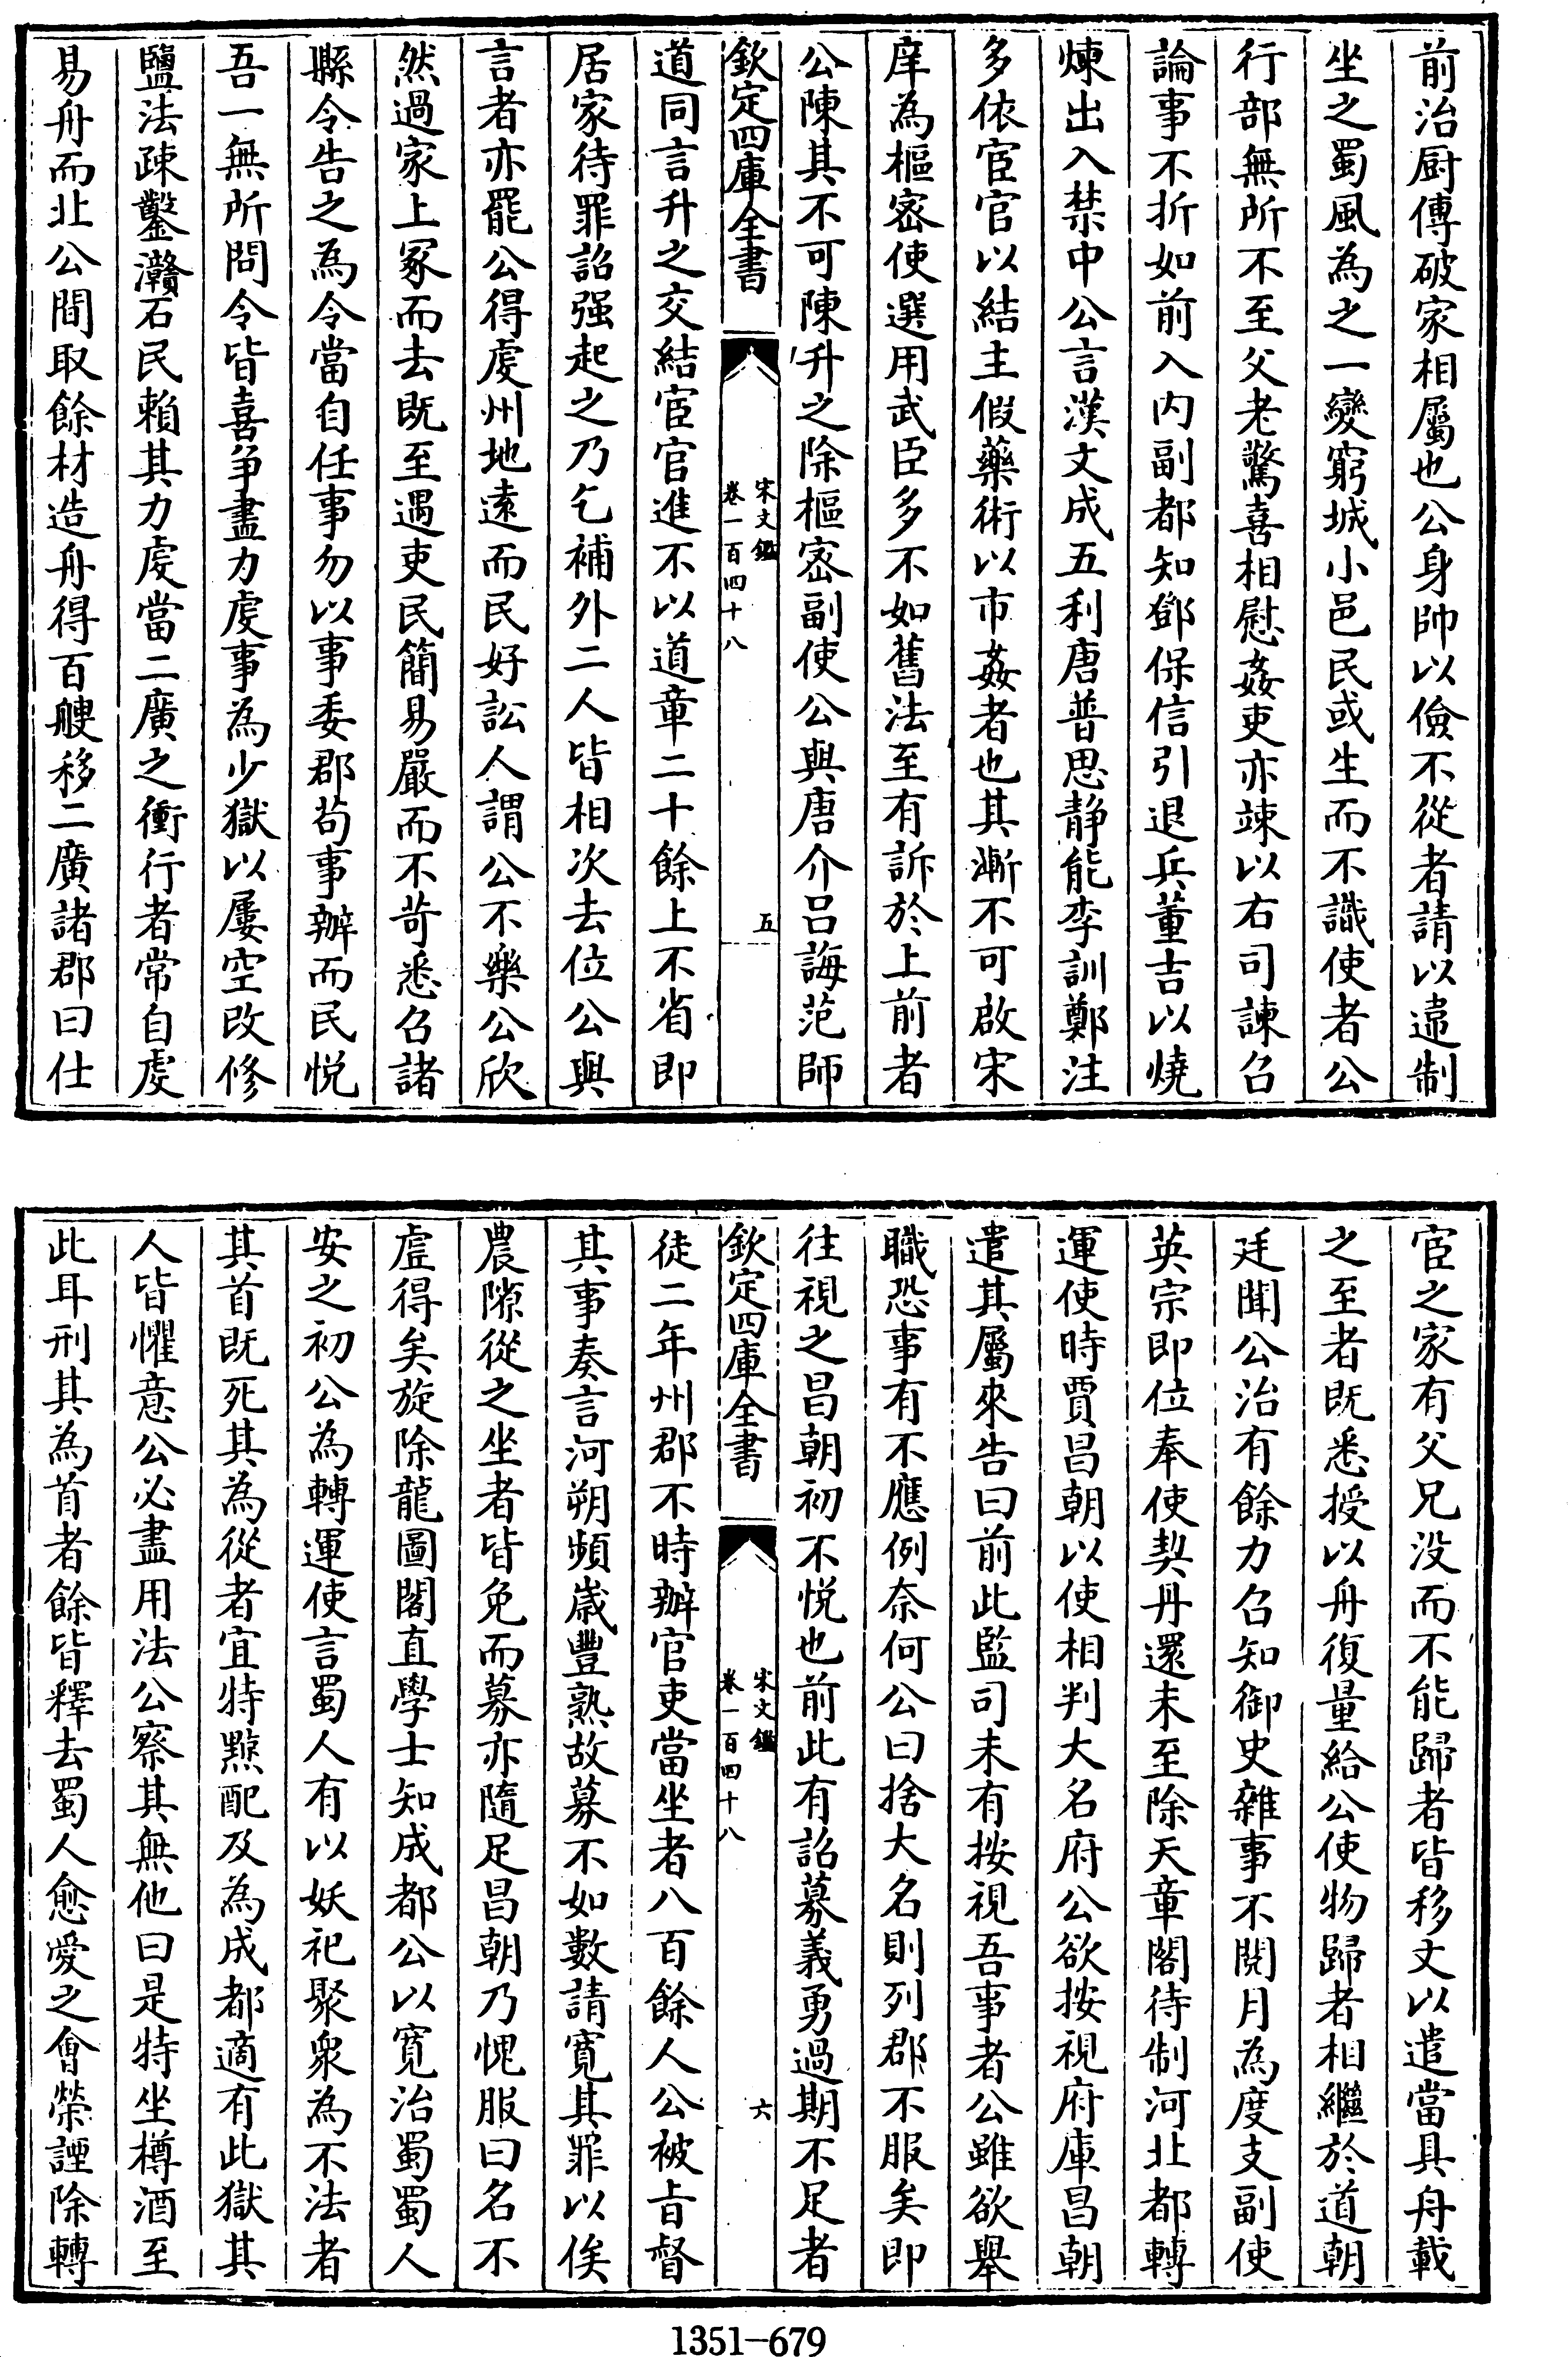 前治厨傳破家相屬也公身帥以儉不從者請以違制
坐之蜀風為之一變窮城小邑民或生而不識使者公
行部無所不至父老驚喜相慰姦吏亦竦以右司諫召
論事不折如前入内副都知鄧保信引退兵董吉以燒
煉出入禁中公言漢文成五利唐普思静能李訓鄭注
多依宦官以結主假藥術以市姦者也其漸不可啟宋
庠為樞密使選用武臣多不如舊法至有訴於上前者
公陳其不可陳升之除樞密副使公與唐介吕誨范師
欽定四庫全書
宋文鑑
卷一百四十八
五
道同言升之交結宦官進不以道章二十餘上不省即
居家待罪詔强起之乃乞補外二人皆相次去位公與
言者亦罷公得虔州地逺而民好訟人謂公不樂公欣
然過家上冢而去既至遇吏民簡易嚴而不苛悉召諸
縣令告之為令當自任事勿以事委郡茍事辦而民悦
吾一無所問令皆喜争盡力虔事為少獄以屢空改修
鹽法疎鑿灨石民賴其力虔當二廣之衝行者常自虔
易舟而北公間取餘材造舟得百艘移二廣諸郡曰仕
宦之家有父兄没而不能歸者皆移文以遣當具舟載
之至者既悉授以舟復量給公使物歸者相繼於道朝
廷聞公治有餘力召知御史雜事不閲月為度支副使
英宗即位奉使契丹還未至除天章閣待制河北都轉
運使時賈昌朝以使相判大名府公欲按視府庫昌朝
遣其屬來告曰前此監司未有按視吾事者公雖欲舉
職恐事有不應例奈何公曰捨大名則列郡不服矣即
往視之昌朝初不悦也前此有詔募義勇過期不足者
欽定四庫全書
宋文鑑
卷一百四十八
六
徒二年州郡不時辦官吏當坐者八百餘人公被㫖督
其事奏言河朔頻嵗豐熟故募不如數請寛其罪以俟
農隙從之坐者皆免而募亦隨足昌朝乃愧服曰名不
虗得矣旋除龍圖閣直學士知成都公以寛治蜀蜀人
安之初公為轉運使言蜀人有以妖祀聚衆為不法者
其首既死其為從者宜特黥配及為成都適有此獄其
人皆懼意公必盡用法公察其無他曰是特坐樽酒至
此耳刑其為首者餘皆釋去蜀人愈愛之會榮諲除轉
1351-679